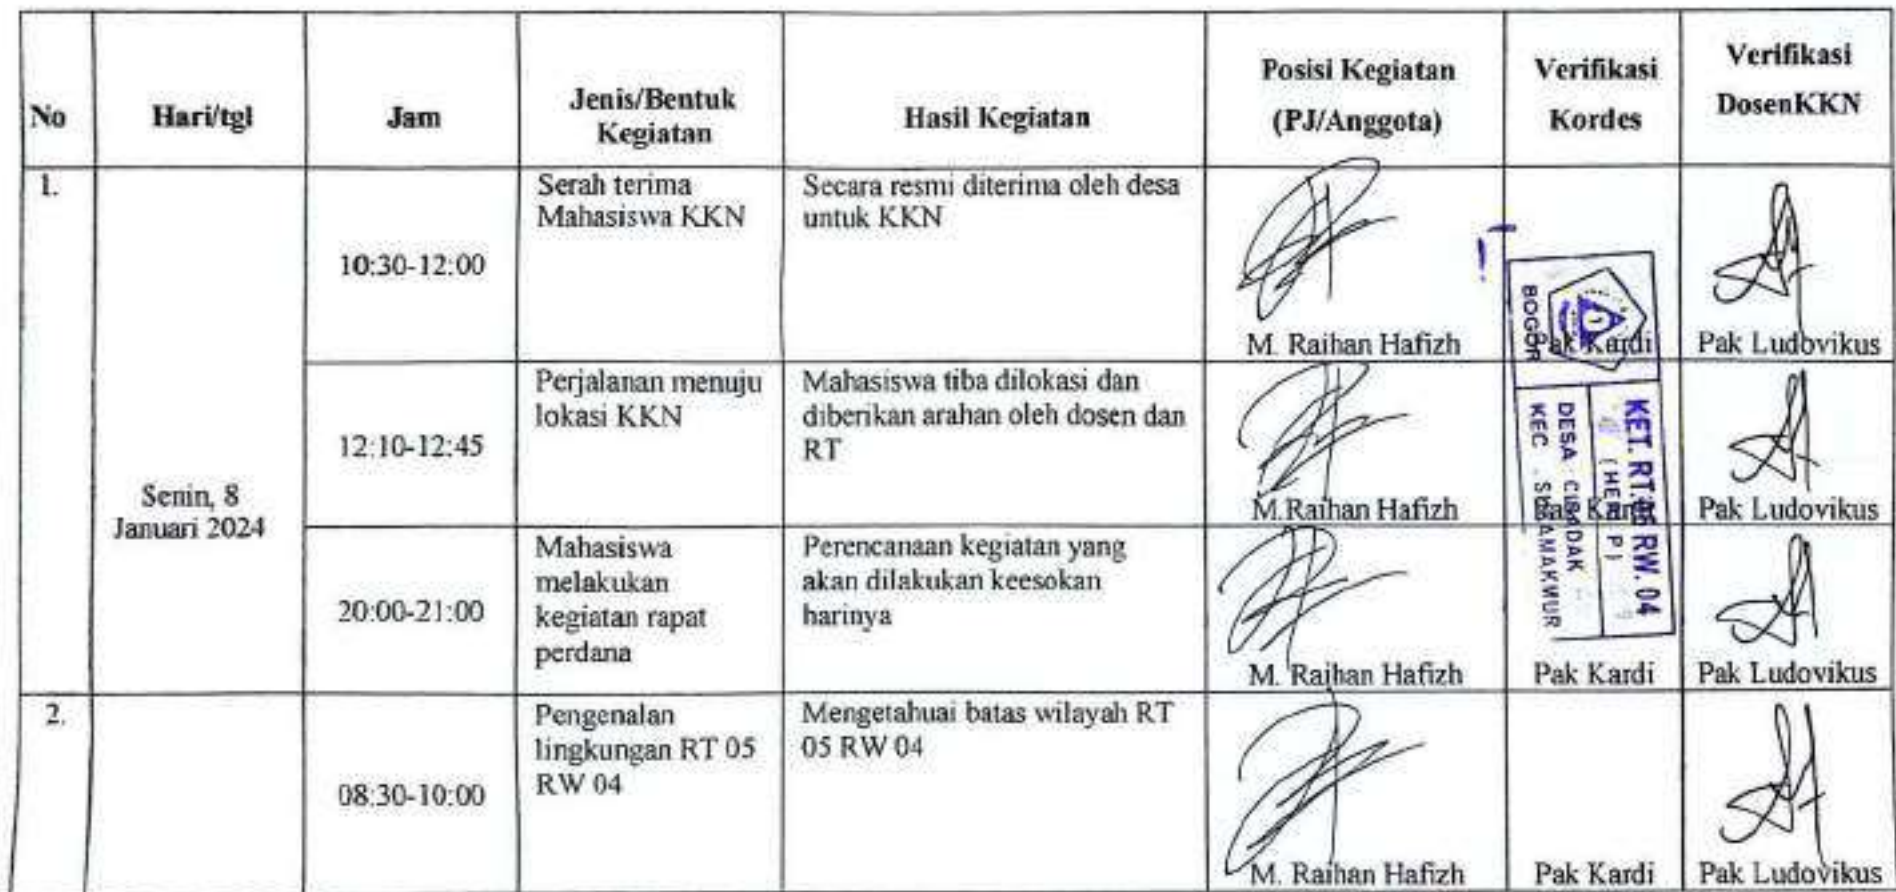 No
Hari/tgl
Jam
Jenis/Bentuk
Kegiatan
Hasil Kegiatan
Posisi Kegiatan
(PJ/Anggota)
Verifikasi
Kordes
Verifikasi
DosenKKN
1.
Senin, 8
Januari 2024
10:30-12:00
Serah terima
Mahasiswa KKN
Secara resmi diterima oleh desa
untuk KKN
M. Raihan Hafizh
Pak Kardi
Pak Ludovikus
12:10-12:45
Perjalanan menuju
lokasi KKN
Mahasiswa tiba dilokasi dan
diberikan arahan oleh dosen dan
RT
M.Raihan Hafizh
Pak Kardi
Pak Ludovikus
20:00-21:00
Mahasiswa
melakukan
kegiatan rapat
perdana
Perencanaan kegiatan yang
akan dilakukan keesokan
harinya
M. Raihan Hafizh
Pak Kardi
Pak Ludovikus
BOGOR
KET. RT. RW. 04
DESA
KEC
2.
08:30-10:00
Pengenalan
lingkungan RT 05
RW 04
Mengetahuai batas wilayah RT
05 RW 04
M. Raihan Hafizh
Pak Kardi
Pak Ludovikus